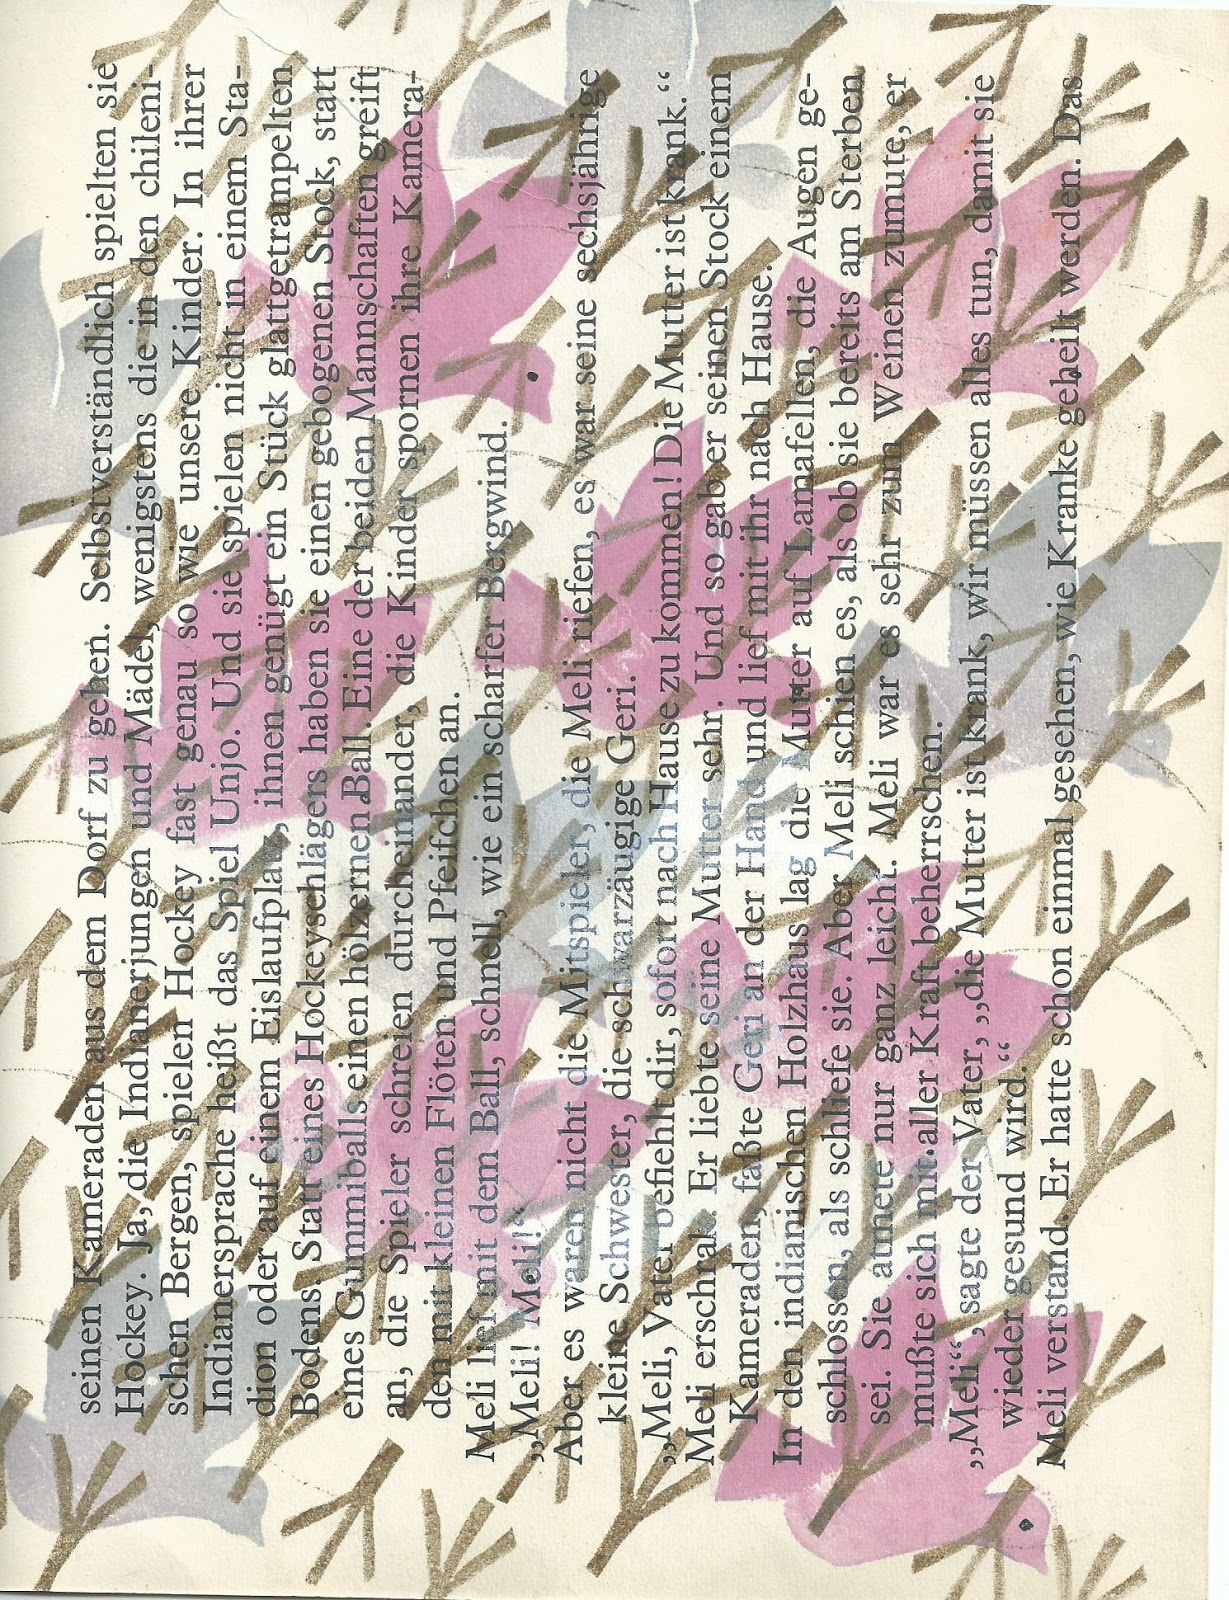 seinen Kameraden aus dem Dorf zu gehen. Selbstverständlich spielten sie
Hockey. Ja, die Indianerjungen und Mädel, wenigstens die in den chileni-
schen Bergen, spielen Hockey fast genau so wie unsere Kinder. In ihrer
Indianersprache heißt das Spiel Unjo. Und sie spielen nicht in einem Sta-
dion oder auf einem Eislaufplatz, ihnen genügt ein Stück glattgetrampelten
Bodens. Statt eines Hockeyschlägers haben sie einen gebogenen Stock, statt
eines Gummiballs einen hölzernen Ball. Eine der beiden Mannschaften greift
an, die Spieler schreien durcheinander, die Kinder spornen ihre Kamera-
den mit kleinen Flöten und Pfeifchen an.
Meli lief mit dem Ball, schnell, wie ein scharfer Bergwind.
„Meli! Meli!“
Aber es waren nicht die Mitspieler, die Meli riefen, es war seine sechsjährige
kleine Schwester, die schwarzäugige Geri.
„Meli, Vater befiehlt dir, sofort nach Hause zu kommen! Die Mutter ist krank.“
Meli erschrak. Er liebte seine Mutter sehr. Und so gab er seinen Stock einem
Kameraden, faßte Geri an der Hand und lief mit ihr nach Hause.
In den indianischen Holzhaus lag die Mutter auf Lamafellen, die Augen ge-
schlossen, als schliefe sie. Aber Meli schien es, als ob sie bereits am Sterben
sei. Sie atmete nur ganz leicht. Meli war es sehr zum Weinen zumute, er
mußte sich mit aller Kraft beherrschen.
„Meli“, sagte der Vater, „die Mutter ist krank, wir müssen alles tun, damit sie
wieder gesund wird.“
Meli verstand. Er hatte schon einmal gesehen, wie Kranke geheilt werden. Das